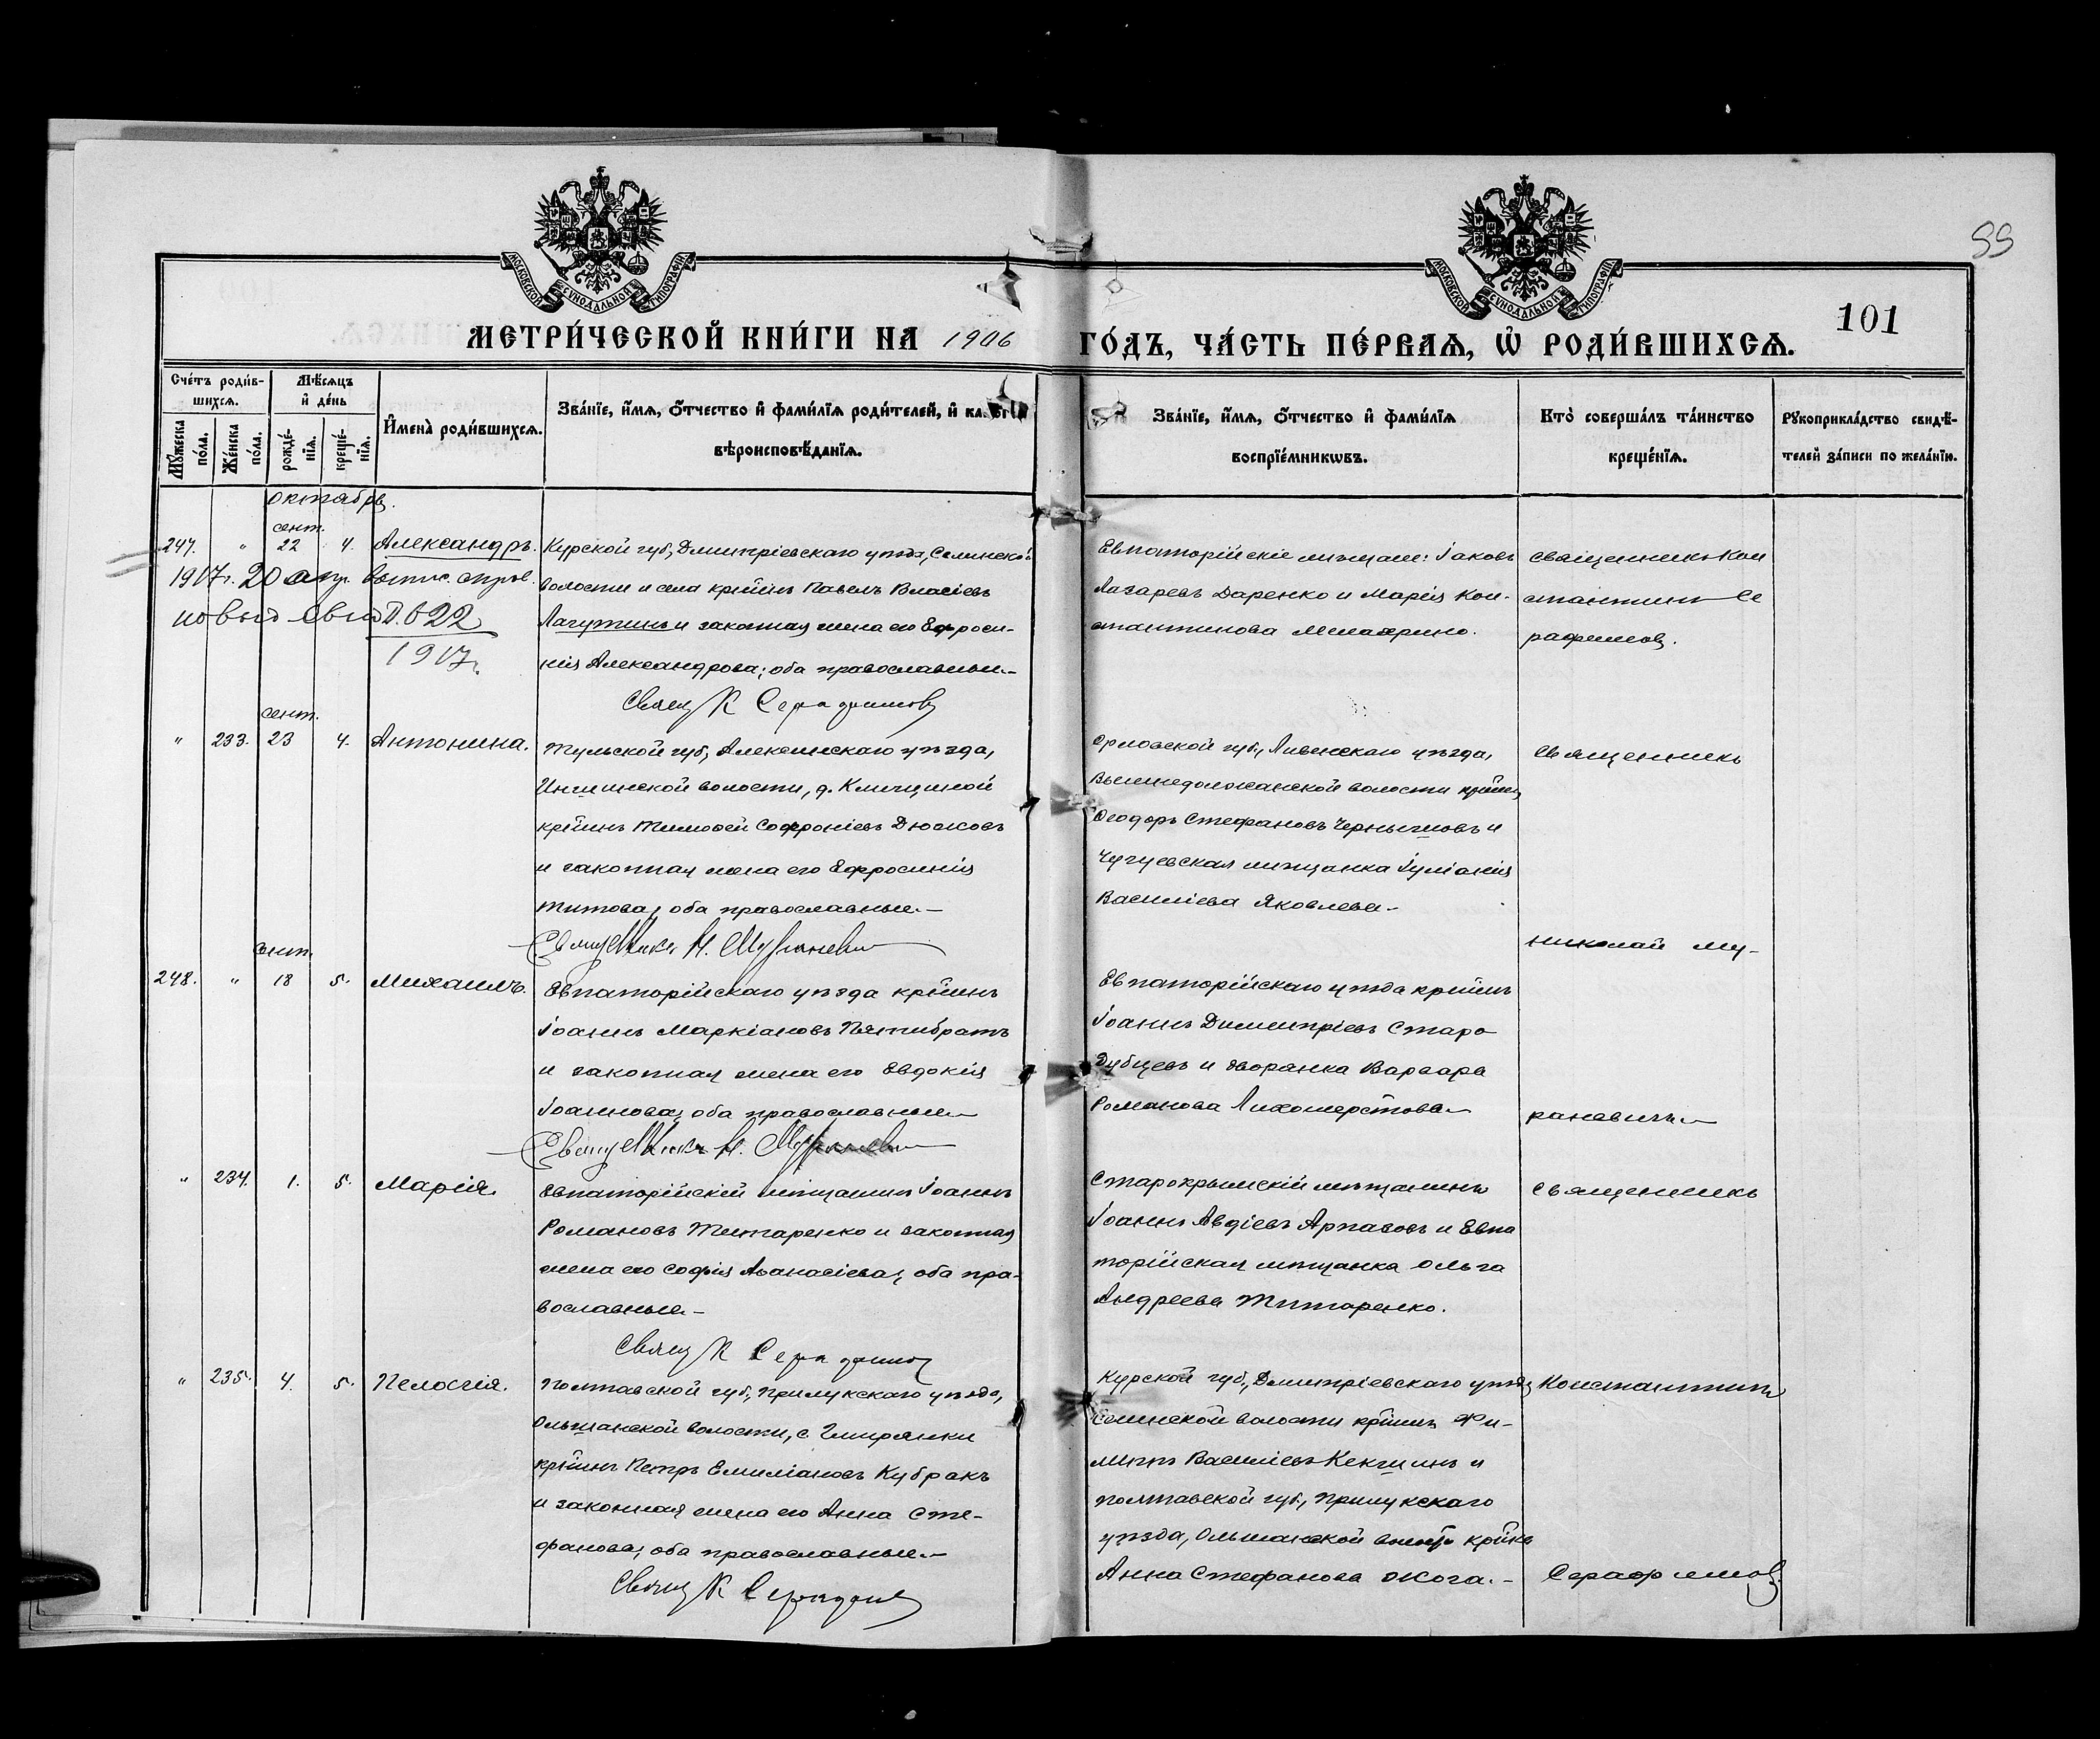 99
МОСКОВСКОЙ СѴНОДАЛЬНОЙ ТИПОГРАФІИ
МОСКОВСКОЙ СѴНОДАЛЬНОЙ ТИПОГРАФІИ
МЕТРИ́ЧЕСКОЙ КНИ́ГИ НА 1906 ГО́ДЪ, ЧА́СТЬ ПЕ́РВАѦ, Ѡ҆ РОДИ́ВШИХСѦ.
101
Сче́тъ роди́в-
шихсѧ.
Мꙋ́жеска по́ла.
Же́нска по́ла.
Мѣ́сѧцъ
и҆ де́нь
рожде́-
нїѧ.
креще́-
нїѧ.
И҆мена̀ роди́вшихсѧ.
Зва́нїе, и҆́мѧ, ѻ҆́тчество и҆ фами́лїѧ роди́телей, и҆
вѣроисповѣ́данїѧ.
Зва́нїе, и҆́мѧ, ѻ҆́тчество и҆ фами́лїѧ
воспрїе́мникѡвъ.
Кто̀ соверша́лъ та́инство
креще́нїѧ.
Рꙋкоприкла́дство свидѣ́-
телей за́писи по жела́нїю.
Октябрь.
сент.
247. " 22 4. Александръ.
1917г. 20 апр.
новый 622
1917г.
Курской губ., Дмитріевскаго уѣзда, Селинской
волости и села кр̃нинъ Павелъ Власіевъ
Лагутинъ и законная жена его Ефроси-
нія Александрова; оба православные.–
Свящ К Серафимовъ
Евпаторійскіе мѣщане: Іаковъ
Лазаревъ Даренко и Марія Кон-
стантинова
Священникъ Кон
стантинъ Се
рафимовъ.
сент.
" 233. 23 4. Антонина.
Тульской губ., Алексинскаго уѣзда,
волости, д.
кр̃нинъ Тимоѳей Софроніевъ Дюжовъ
и законная жена его Ефросинія
Титова; оба православные.–
Священникъ Н.
Орловской губ., Ливенскаго уѣзда,
Вышнедолжанской волости кр̃нинъ
Ѳеодоръ Стефановъ Чернышовъ и
Чугуевская мѣщанка Іуліанія
Василіева Яковлева–
Священникъ
Николай Му-
раневичъ–
сент.
248. " 18 5. Михаилъ.
Евпаторійскаго уѣзда кр̃нинъ
Іоаннъ Маркіановъ Пятибратъ
и законная жена его Евдокія
Іоаннова; оба православные–
Священникъ Н.
Евпаторійскаго уѣзда кр̃нинъ
Іоаннъ Димитріевъ Старо
Дубцевъ и дворянка Варвара
Романова Лихошерстова–
" 234. 1. 5. Марія.
Евпаторійскій мѣщанинъ Іоаннъ
Романовъ Титаренко и законная
жена его Софія Аѳанасіева; оба пра-
вославные.–
Свящ К Серафимов
Старокрымскій мѣщанинъ
Іоаннъ Авдіевъ Арпазовъ и Евпа
торійская мѣщанка Ольга
Андреева Титаренко.
Священникъ
Константинъ
Серафимовъ.
" 235. 4. 5. Пелагія.
Полтавской губ., Прилукскаго уѣзда,
Ольшанской волости, с. Гмирянки
кр̃нинъ Петръ Емиліановъ Кубракъ
и законная жена его Анна Сте-
фанова; оба православные.–
Свящ К Серафимов
Курской губ., Дмитріевскаго уѣзда
Селинской волости кр̃нинъ Фи-
липпъ Василіевъ Кекшинъ и
Полтавской губ., Прилукскаго
уѣзда, Ольшанской кр̃нка
Анна Стефанова